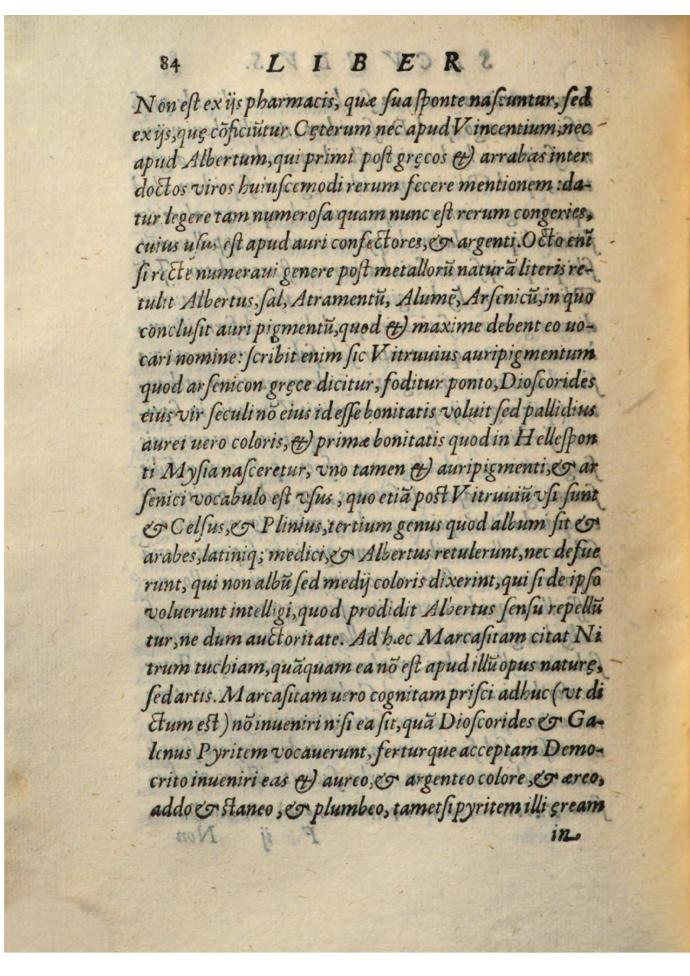 84 LIBER
Non est ex ijs pharmacis, quæ sua sponte nascuntur, sed
ex ijs, quę cõficiũtur. Cęterum nec apud Vincentium, nec
apud Albertum, qui primi post gręcos & arrabas inter
doctos viros huiuscemodi rerum fecere mentionem: da-
tur legere tam numerosa quam nunc est rerum congeries,
cuius usus est apud auri confectores, & argenti. Octo enĩ
si recte numeraui genere post metallorũ naturã literis re-
tulit Albertus, sal, Atramentũ, Alumẽ, Arsenicũ, in quo
conclusit auri pigmentũ, quod & maxime debent eo uo-
cari nomine: scribit enim sic Vitruuius auripigmentum
quod arsenicon gręce dicitur, foditur ponto, Dioscorides
eius vir seculi nõ eius id esse bonitatis voluit sed pallidius
aurei uero coloris, & primæ bonitatis quod in Hellespon
ti Mysia nasceretur, vno tamen & auripigmenti, & ar
senici vocabulo est vsus, quo etiã post Vitruuiũ vsi sunt
& Celsus, & Plinius, tertium genus quod album sit &
arabes, latiniq; medici, & Albertus retulerunt, nec defue
runt, qui non albũ sed medij coloris dixerint, qui si de ipso
voluerunt intelligi, quod prodidit Albertus sensu repellũ
tur, ne dum auctoritate. Ad hæc Marcasitam citat Ni
trum tuchiam, quãquam ea nõ est apud illũ opus naturę,
sed artis. Marcasitam uero cognitam prisci adhuc (vt di
ctum est) nõ inueniri nisi ea sit, quã Dioscorides & Ga-
lenus Pyritem vocauerunt, ferturque acceptam Demo-
crito inueniri eas & aureo, & argenteo colore, & æreo,
addo & staneo, & plumbeo, tametsi pyritem illi ęream
in